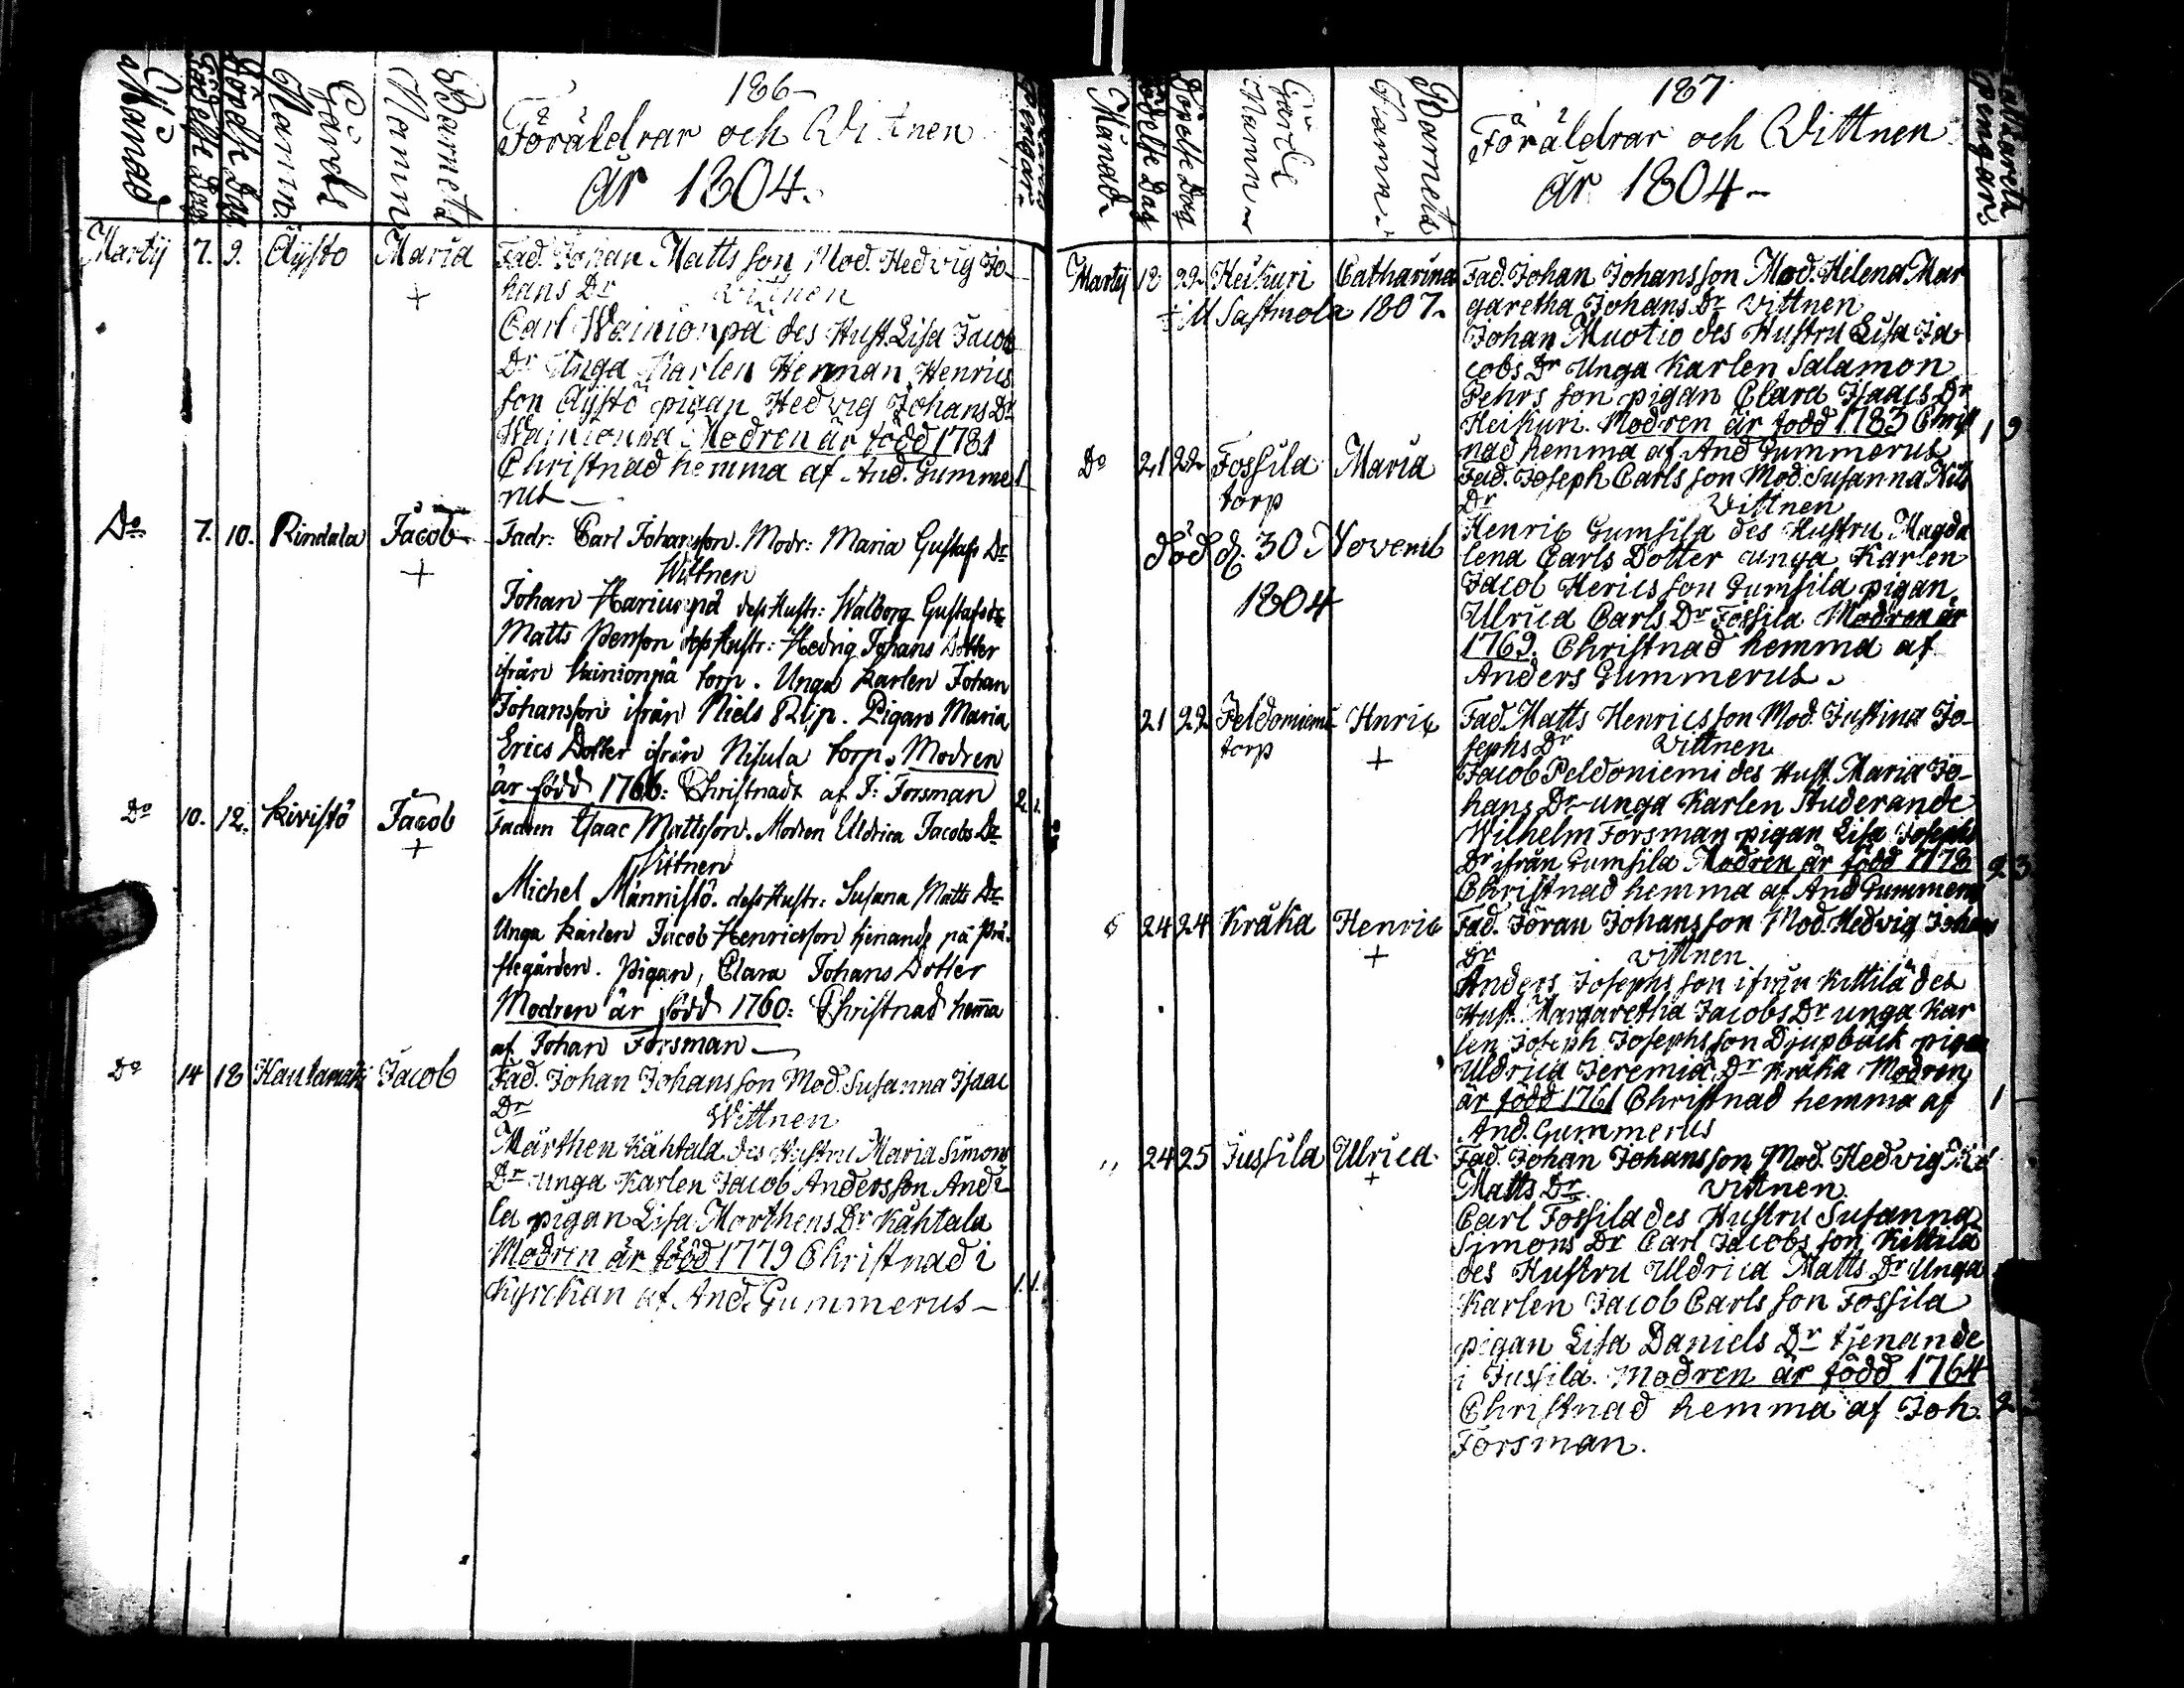 186
Månad
Födelse Dag
Döpelse Dag
Gårds Namn
Barnets Namn
Föräldrar och Vittnen
år 1804.
Martij 7. 9. Aÿsto Maria Fad. Johan Matts son Mod. Hedvig Jo-
hans Dr Vittnen
Carl Wainionpä des Hust. Lisa Jacob
Dr Unga Karlen Herman Henrics
son Aÿstö pigan Hedvig Johans Dr
Wainionpä Modren är född 1781
Christnad hemma af And. Gumme 1
rus
Do 7. 10. Rindala Jacob Fadr: Carl Johansson. Modr: Maria Gustafs Dr
Wittnen
Johan Hariunpä dess Hustr: Walborg Gustafs Dr
Matts Person dess Hustr: Hedvig Johans Dotter
ifrån Vainionpä torp. Unga Karlen Johan
Johansson ifrån Niels Rlip. Pigan Maria
Erics Dotter ifrån Nisula torp. Modren
är född 1766: Christnadt af J: Forsman 2. 1.
Do 10. 12. Kivistö Jacob Fadren Isaac Mattsson. Modren Uldrica Jacobs Dr
Vittnen
Michel Männistö. dess Hustr: Susana Matts Dr
Unga Karlen Jacob Henricsson tjenande på Prä-
stegården. Pigan, Clara Johans Dotter
Modren är född 1760: Christnad hemma
af Johan Forsman
Do 14 18 Hautamäki Jacob Fad. Johan Johans son Mod. Susanna Isaac
Dr Wittnen
Mårthen Kähtala des Hustru Maria Simons
Dr unga Karlen Jacob Anders son Andi
la pigan Lisa Morthens Dr Kähtala
Modren är född 1779 Christnad i
Kyrckan af And. Gummerus 1. 1.
187
Månad
Födelse Dag
Döpelse Dag
Gårds Namn
Barnets Namn
Föräldrar och Vittnen
år 1804
Martij 18 22 Heikuri Catharina Fad. Johan Johansson Mod. Helena Mar
Sastmola 1807. garetha Johans Dr Vittnen
Johan Muotio des Hustru Lisa Ja
cobs Dr Unga Karlen Salamon
Pehrs son pigan Clara Isaacs Dr
Heikuri. Modren är född 1783 Christ 1 9
nad hemma af And Gummerus
Do 21 22 Fossila Maria Fad. Joseph Carls son Mod. Susanna Nils
torp Dr Vittnen
Henric Gumsila des Hustru Magda
död d. 30 Novemb lena Carls Dotter unga Karlen
Jacob Herics son Gumsila pigan
1804 Ulrica Carls Dr Fossila Modren är
1769. Christnad hemma af
Anders Gummerus.
21 22 Peldoniemi Hnric Fad. Matts Henrics son Mod. Justina Jo-
torp sephs Dr Vittnen
Jacob Peldoniemi des Hust. Maria Jo-
hans Dr unga Karlen Studerande
Wilhelm Forsman pigan Lisa Josephs
Dr ifrån Gumsila Modren är född 1778 2 3
Christnad hemma af And Gummerus
24 24 Kråka Henric Fad. Jöran Johans son Mod. Hedvig Johans
Dr Vittnen
Anders Josephs son ifrån Kittilä des
Hust. Margaretha Jacobs Dr unga Kar
len Joseph Josephs son Djupbäck pigan
Uldrica Jeremiæ Dr Kråka Modren
är född 1761 Christnad hemma af 1
And. Gummerus
,, 24 25 Jussila Ulrica Fad. Johan Johansson Mod. Hedvig
Matts Dr. Vittnen
Carl Fossila des Hustru Susanna
Simons Dr Carl Jacobs son Kittilä
des Hustru Uldrica Matts Dr Unga
Karlen Jacob Carls son Fossila
pigan Lisa Daniels Dr tjenande
i Jussila. Modren är född 1764
Christnad hemma af Joh. 2
Forsman.